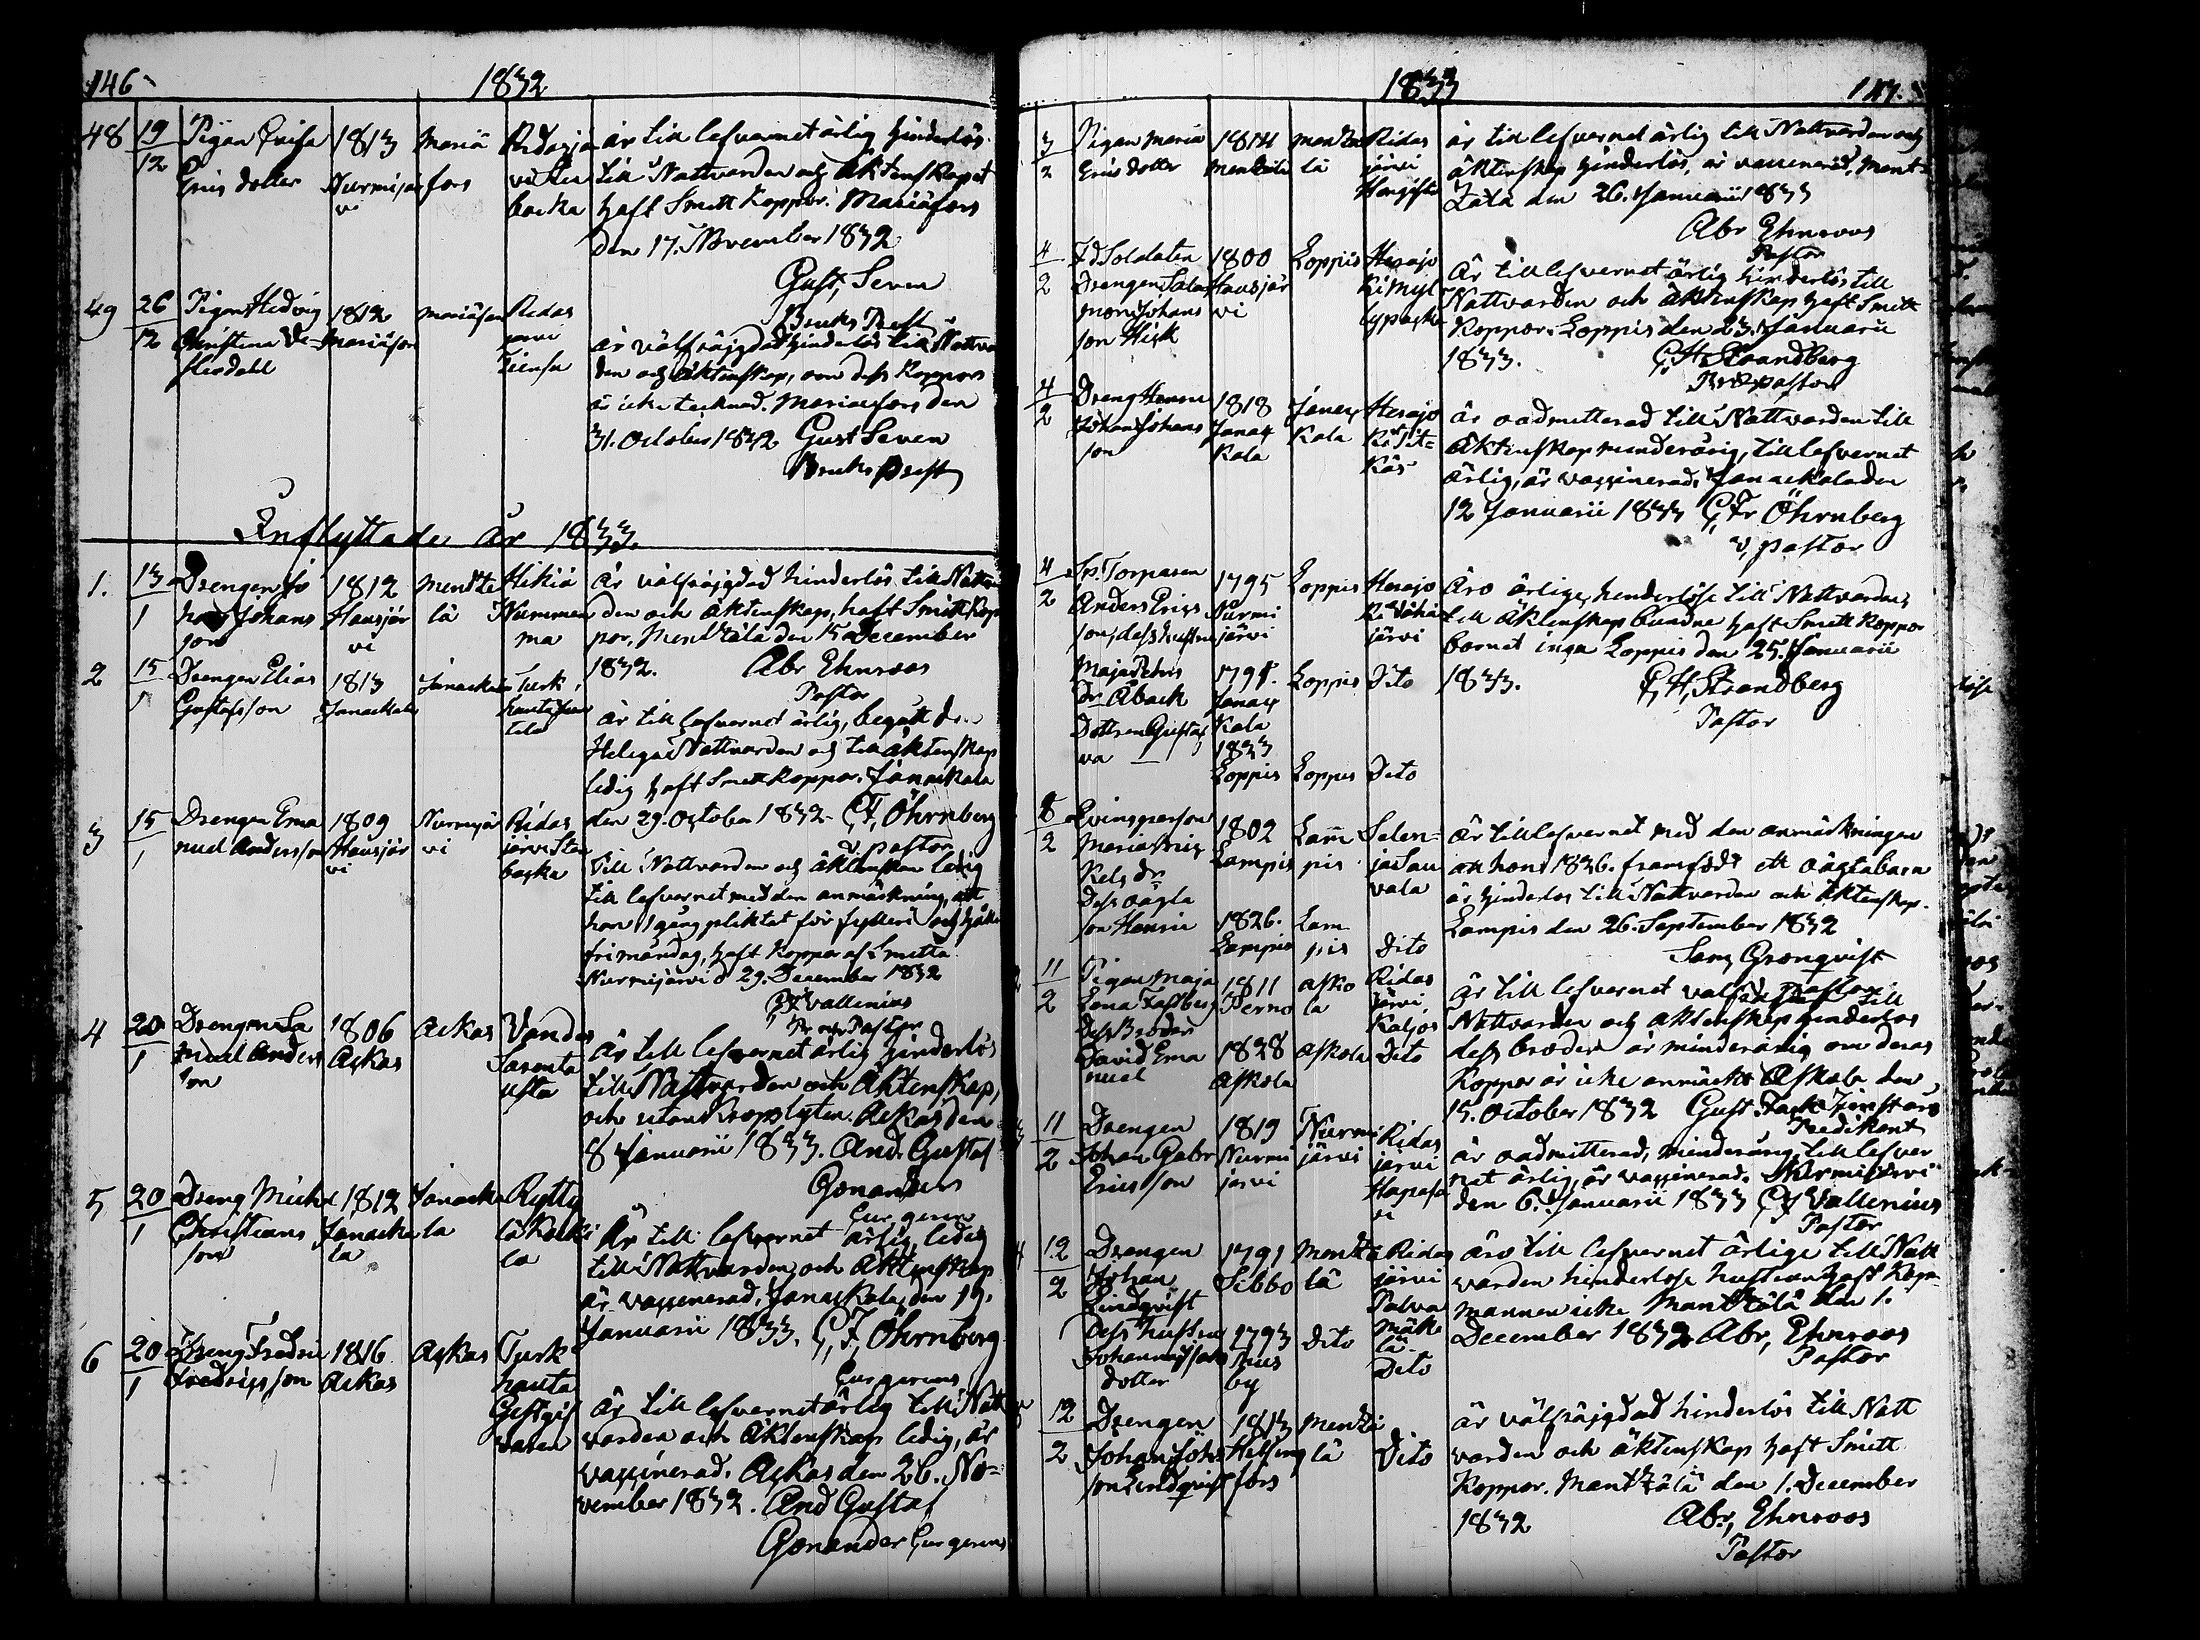 146
1832
48 19/12 Pigan Eva Ericsdotter 1813 Nurmijärvi Mariæfors Ridasjärvi backa
är till lefvernet ärlig hinderlös
till Nattvarden och Äktenskapet
haft Smitt Koppor. Mariæfors
den 17. November 1832
Gust. Seven
Bruks Prest
49 26/12 Pigan Hedvig Christina 1812 Mariæfors Mariæfors Ridasjärvi
är välfräjgdad hinderlös till Nattvar
den och Äktenskap, om dess Koppor
är icke tecknad. Mariæfors den
31. October 1832 Gust Seven
Bruks Prest
Inflyttade År 1833
1. 13/1 Drengen Johan Johansson 1812 Hausjärvi Mentzälä Hikiä Nummenma
Är välfräjgdad hinderlös till Nattvar
den och äktenskap, haft Smitt Kop
por. Mentzälä den 15 December
1832. Abr Ehnroos
Pastor
2 15/1 Drengen Elias Gustafsson 1813 Janackala Janackala Turkhauta
är till lefvernet ärlig, begått den
Heliga Nattvarden och till äktenskap
ledig haft Smitt Koppor. Janackala
den 29. October 1832. C,F, Öhrnberg
v. pastor
3 15/1 Drengen Emanuel Andersson 1809 Hausjärvi Nurmijärvi Ridasjärvi backa
Till Nattvarden och äktenskap ledig
till lefvernet med den anmärkning, att
han 1 gång pliktat för fylleri och hållit
frimåndag, haft Koppor af Smitta
Nurmijärvi d 29. December 1832
C F Vallenius
Pastor
4 20/1 Drengen Samuel Andersson 1806 Askas Askas
Är till lefvernet ärlig hinderlös
till Nattvarden och Äktenskap,
och utan Kropslyten. Askas den
8 Januarii 1833. And. Gustaf
Gonander
Cur gerens
5 20/1 Dreng Michel Christiansson 1812 Janackala Janackala Ryttylä
Är till lefvernet ärlig ledig
till Nattvarden och Äktenskap
är vaxxinerad. Janackala, den 19.
Januarii 1833. C,F, Öhrnberg
Cur gerens
6 20/1 Dreng Fredric Fredricsson 1816 Askas Askas Turkhauta Gestgifvaren
är till lefvernet ärlig till Natt
varden och Äktenskap ledig, är
vaxxinerad. Askas den 26. No=
vember 1832. And Gustaf
Gonander Cur gerens
1833
147.
3/2 Pigan Maria Ericsdotter 1814 Mentzälä Mentzälä Ridasjärvi
är till lefvernet ärlig till Nattvarden och
äktenskap hinderlös, är vaccinerad, Ment=
zälä den 26. Januarii 1833
Abr Ehnroos
Pastor
4/2 Fd Soldaten Drengen Salomon Johansson 1800 Hausjärvi Loppis Herajoki
Är till lefvernet ärlig hinderlös till
Nattvarden och Äktenskap haft Smitt
Koppor. Loppis den 23. Januarii
1833. C,H, Strandberg
pastor
4/2 Dreng Henric Johan Johansson 1818 Janackala Janackala Herajoki
är oadmitterad till Nattvarden till
Äktenskap minderårig, till lefvernet
ärlig, är vaxxinerad. Janackala den
12 Januarii 1833 C,Fr Öhrnberg
v, pastor
4/2 Torparen Anders Ericsson, dess hustru 1795 Nurmijärvi Loppis Herajoki järvi
Äro ärlige, hinderlöse till Nattvarden,
till Äktenskap bundne haft Smitt Koppor
barnet inga Loppis den 25. Januarii
1833. C,H, Strandberg
Pastor
Maja 1798. Janackala Loppis Dito
Dottren Gustafva 1833 Loppis Loppis Dito
8/2 Qvinsperson Maria 1802 Lampis Lampis
är till lefvernet med den anmärkningen
att hon 1826. framfödt ett oägta barn
är hinderlös till Nattvarden och Äktenskap.
Lampis den 26. September 1832
Sam, Gronqvist
Pastor
Dess oägta son Henric 1826. Lampis Lampis Dito
11/2 Pigan Maja Lena 1811 Perno Askola Ridasjärvi
Är till lefvernet
Nattvarden och Äktenskap hinderlös
dess broder är minderårig om deras
Koppor är icke anmärkt Askola den
15. October 1832 Gust
Predikant
Dess Broder David Emanuel 1828 Askola Askola Dito
11/2 Drengen Johan Gabr Ericsson 1819 Nurmijärvi Nurmijärvi Ridasjärvi
är oadmitterad, minderårig till lefver
net ärlig, är vaxxinerad. Nurmijärvi
den 6. Januarii 1833 C F Vallenius
Pastor
12/2 Drengen Johan Lindqvist 1791 Sibbo Mentzälä Ridasjärvi
äro till lefvernet ärlige till Natt
varden hinderlöse hustrun haft Kopp
mannen icke Mentzälä den 1.
December 1832 Abr, Ehnroos
Pastor
Dess hustru Johanna dotter 1793 Dito Dito
12/2 Drengen Johan Johansson Lindqvist 1813 Helsingfors Mentzälä Dito
är välfräjgdad hinderlös till Natt
varden och äktenskap haft Smitt
Koppor. Mentzälä den 1. December
1832 Abr, Ehnroos
Pastor